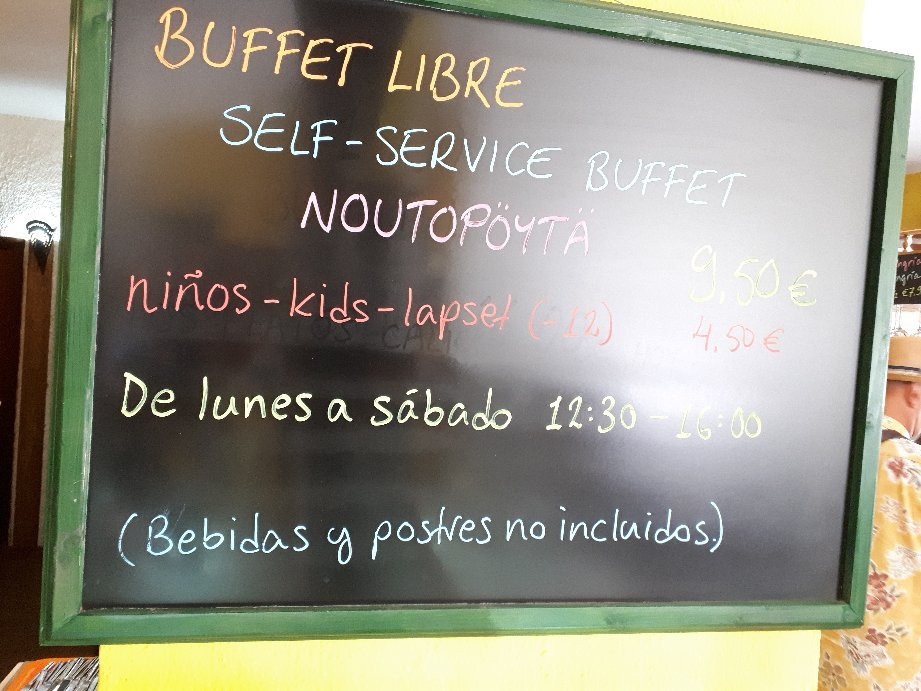 BUFFET LIBRE
SELF-SERVICE BUFFET
NOUTOPÖYTÄ
9,50€
niños-kids-lapset (-12) 4,50€
De lunes a sábado 12:30-16:00
(Bebidas y postres no incluidos.)